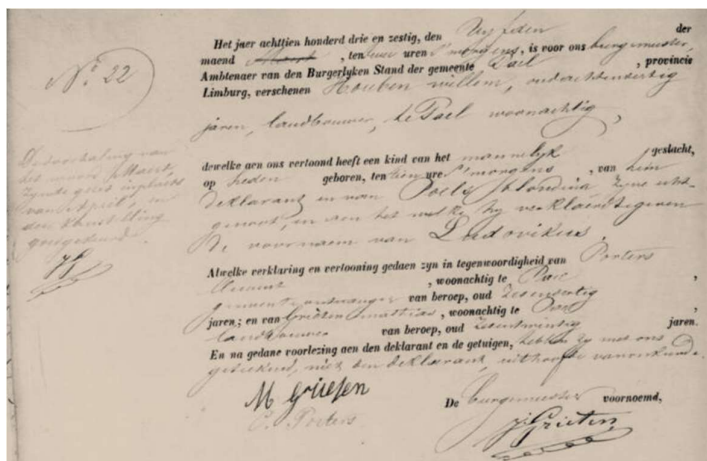 Nº 22
Het jaer achttien honderd drie en zestig, den Vyfden der
maend Maart, ten uren 's morgens, is voor ons burgemeester,
Ambtenaer van den Burgerlyken Stand der gemeente Pael, provincie
Limburg, verschenen Houben willem, oud achtendertig
jaren, landbouwer, te Pael woonachtig,
dewelke aen ons vertoond heeft een kind van het mannelyk geslacht,
op heden geboren, ten ure 's morgens, van hem
deklarant en van Poels blondina zyne echt-
genoot, en aen het welke hy verklaerd te geven
de voornaem van Ludovikus.
Alwelke verklaring en vertooning gedaen zyn in tegenwoordigheid van Porters
, woonachtig te Pael
gemeente ontvanger van beroep, oud zesendertig
jaren; en van Grieten matthias, woonachtig te Pael,
landbouwer van beroep, oud zesentwintig jaren.
En na gedane voorlezing aen den deklarant en de getuigen, hebben zy met ons
geteekend, niet den deklarant, uithoofde van onkunde.
De doorhaling van
het woord Maart,
zynde goed in plaats
van April, is
goedgekeurd.
M Griesen
Porters
De burgemeester voornoemd,
Grieten